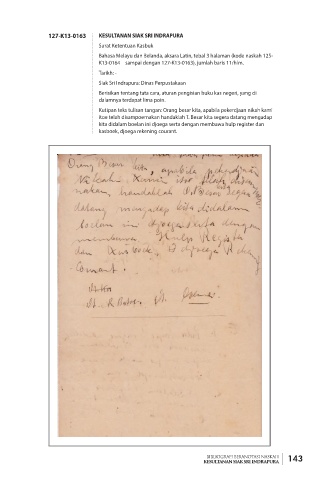 127-K13-0163
KESULTANAN SIAK SRI INDRAPURA
Surat Ketentuan Kasbuk
Bahasa Melayu dan Belanda, aksara Latin, tebal 3 halaman (kode naskah 127-
K13-0164 sampai dengan 127-K13-0163), jumlah baris 11/hlm.
Tarikh: -
Siak Sri Indrapura: Dinas Perpustakaan
Berisikan tentang tata cara, aturan pengisian buku kas negeri, yang di
dalamnya terdapat lima poin.
Kutipan teks tulisan tangan: Orang besar kita, apabila pekerdjaan nikah kami
itoe telah disempoernakan handaklah T. Besar kita segera datang mengadap
kita didalam boelan ini djoega serta dengan membawa hulp register dan
kasboek, djoega rekening courant.
Orang Besar kita, apabila pekerdjaan
Nikah Kami itoe telah disem
nakan, handaklah T. Besar segera
datang mengadap kita didalam
boelan ini djoega serta dengan
membawa Hulp Register
dan Kasboek, djoega Reken
Courant.
BIBLIOGRAFI BERANOTASI NASKAH
KESULTANAN SIAK SRI INDRAPURA
143